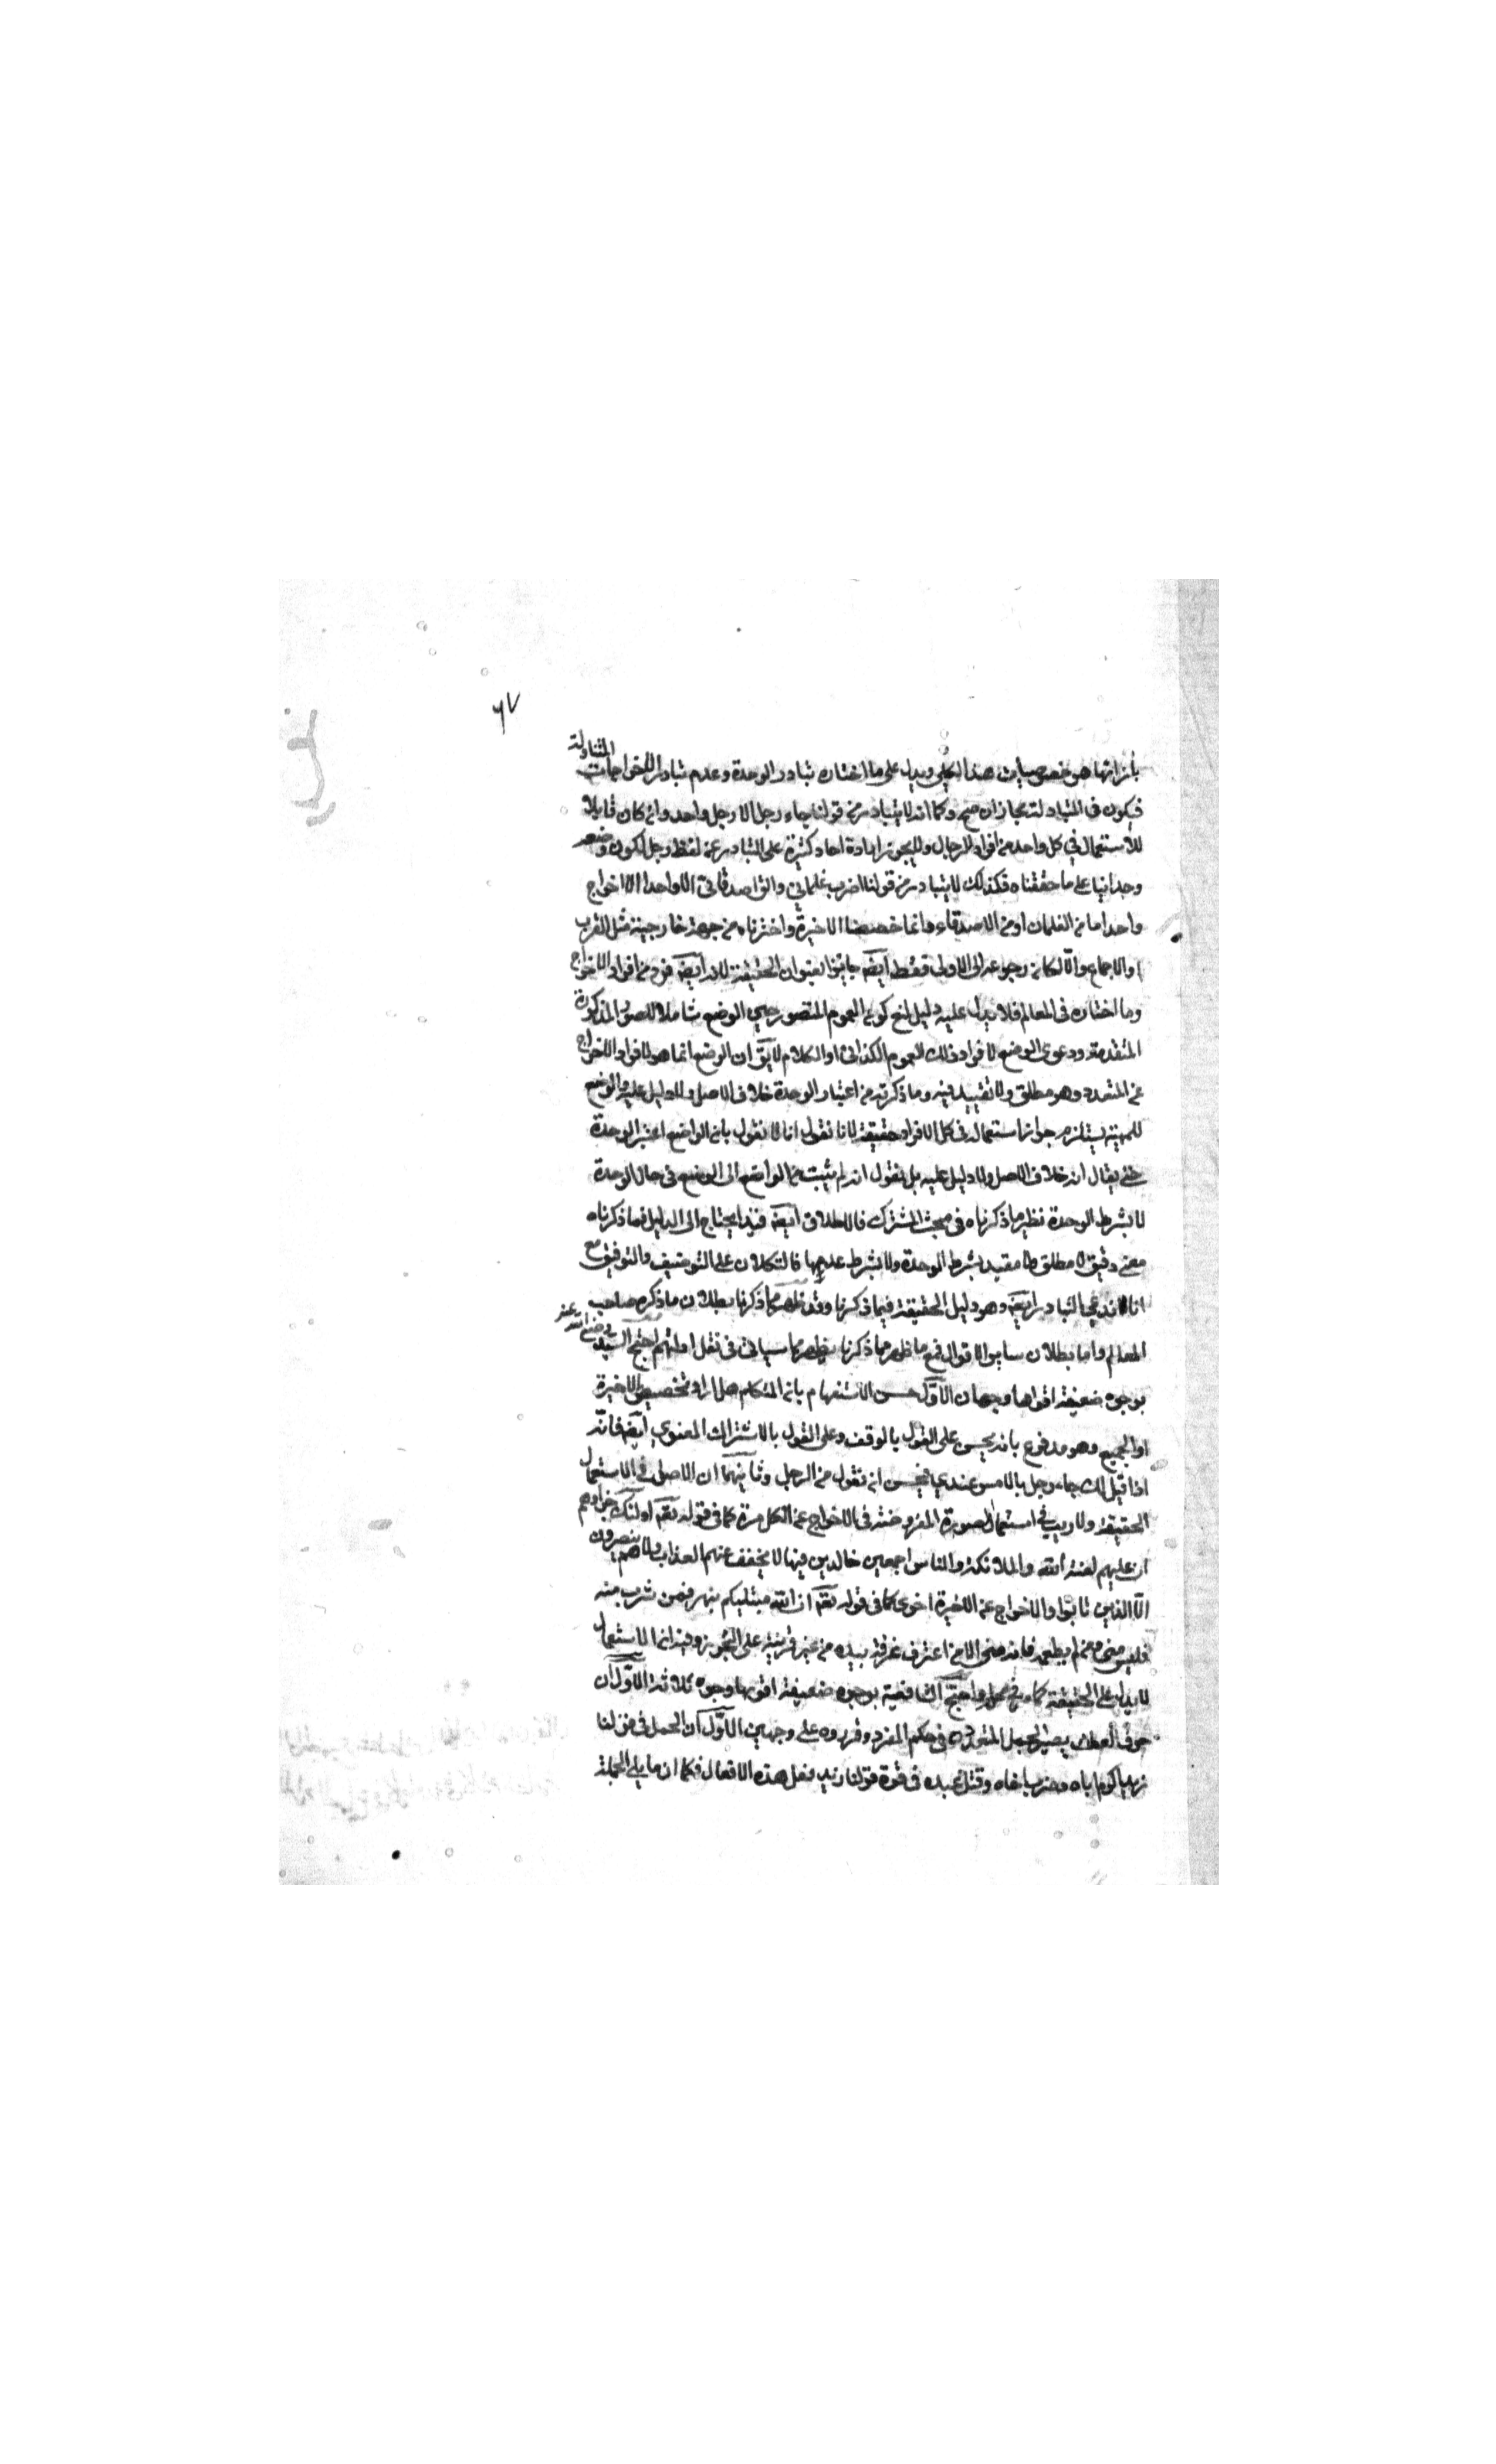 ٦٧
بأزائها هو خصوصيات هذا الكلي ويدل على ما اختاره تبادر الوحدة وعدم تبادر الاخراجات المتناولة
فيكون في المتبادلة مجازا ان صح وكما انه لا يتبادر من قولنا جاء رجل الا رجل واحد وان كان قابلا
للاستعمال في كل واحد من افراد الرجال ولا يجوز ارادة احاد كثيرة على التبادر عن لفظ رجل لكون وضعه
وحدانيا على ما حققناه فكذلك لا يتبادر من قولنا اضرب غلماني والق اصدقائي الا واحدا الا اخراج
واحد اما من الغلمان او من الاصدقاء وانما خصصنا الاخيرة واخترناه من جهة خارجية مثل القرب
او الاجماع والا لكان رجوعه الى الاولى فقط ايضه جايزا بعنوان الحقيقة لانه ايضه فرد من افراد الاخراج
وما اختاره في المعالم فلا يدل عليه دليل لمنع كون العموم المتصور حين الوضع شاملا للصور المذكورة
المتقدمة ودعوى الوضع لافراد ذلك العموم الكذائي اول الكلام لا يق ان الوضع انما هو لافراد الاخراج
عن المتعدد وهو مطلق ولا تقييد فيه وما ذكرته من اعتبار الوحدة خلاف الاصل ولا دليل عليه والوضع
للمهية يستلزم جواز استعماله في كل الافراد حقيقة لانا نقول انا لا نقول بان الواضع اعتبر الوحدة
حتى يقال انه خلاف الاصل ولا دليل عليه بل نقول انه لم يثبت من الواضع الا الوضع في حال الوحدة
لا بشرط الوحدة نظير ما ذكرناه في مبحث المشترك فالاطلاق ايضه قيد يحتاج الى الدليل فما ذكرناه
معنى دقيق لا مطلق ولا مقيد بشرط الوحدة ولا بشرط عدمها فالتكلان على التوصيف والتوفيق مع
انا ندعي التبادر ايضه وهو دليل الحقيقة فيما ذكرنا وقد ظهر مما ذكرنا بطلان ما ذكره صاحب
المعالم واما بطلان ساير الاقوال فمع ما ظهر مما ذكرنا يظهر مما سياتي في نقل ادلتهم احتج السيد رضي الله عنه
بوجوه ضعيفة اقواها وجهان الاول حسن الاستفهام بان المتكلم هل اراد تخصيص الاخيرة
او الجميع وهو مدفوع بانه يحسن على القول بالوقف وعلى القول بالاشتراك المعنوي ايضه فانه
اذا قيل لك جاء رجل بالامس عندي فيحسن ان تقول من الرجل وثانيهما ان الاصل في الاستعمال
الحقيقة ولا ريب في استعمال الصورة المفروضة في الاخراج عن الكل مرة كما في قوله تقه اولئك جزاؤهم
ان عليهم لعنة الله والملائكة والناس اجمعين خالدين فيها لا يخفف عنهم العذاب ولا هم ينصرون
الا الذين تابوا والاخراج عن الاخيرة اخرى كما في قوله تقه ان الله مبتليكم بنهر فمن شرب منه
فليس مني ومن لم يطعمه فانه مني الا من اغترف غرفة بيده من غير قرينة على التجوز وفيه ان الاستعمال
لا يدل على الحقيقة كما مر في محله واحتج الشافعية بوجوه ضعيفة اقواها وجوه ثلاثة الاول ان
حرف العطف يصير الجمل المتعددة في حكم المفرد وقرروه على وجهين الاول ان الجمل في قولنا
زيد اكرم اباه وضرب اخاه وقتل عبده في قوة قولنا زيد فعل هذه الافعال فكما ان ما يلي الجملة